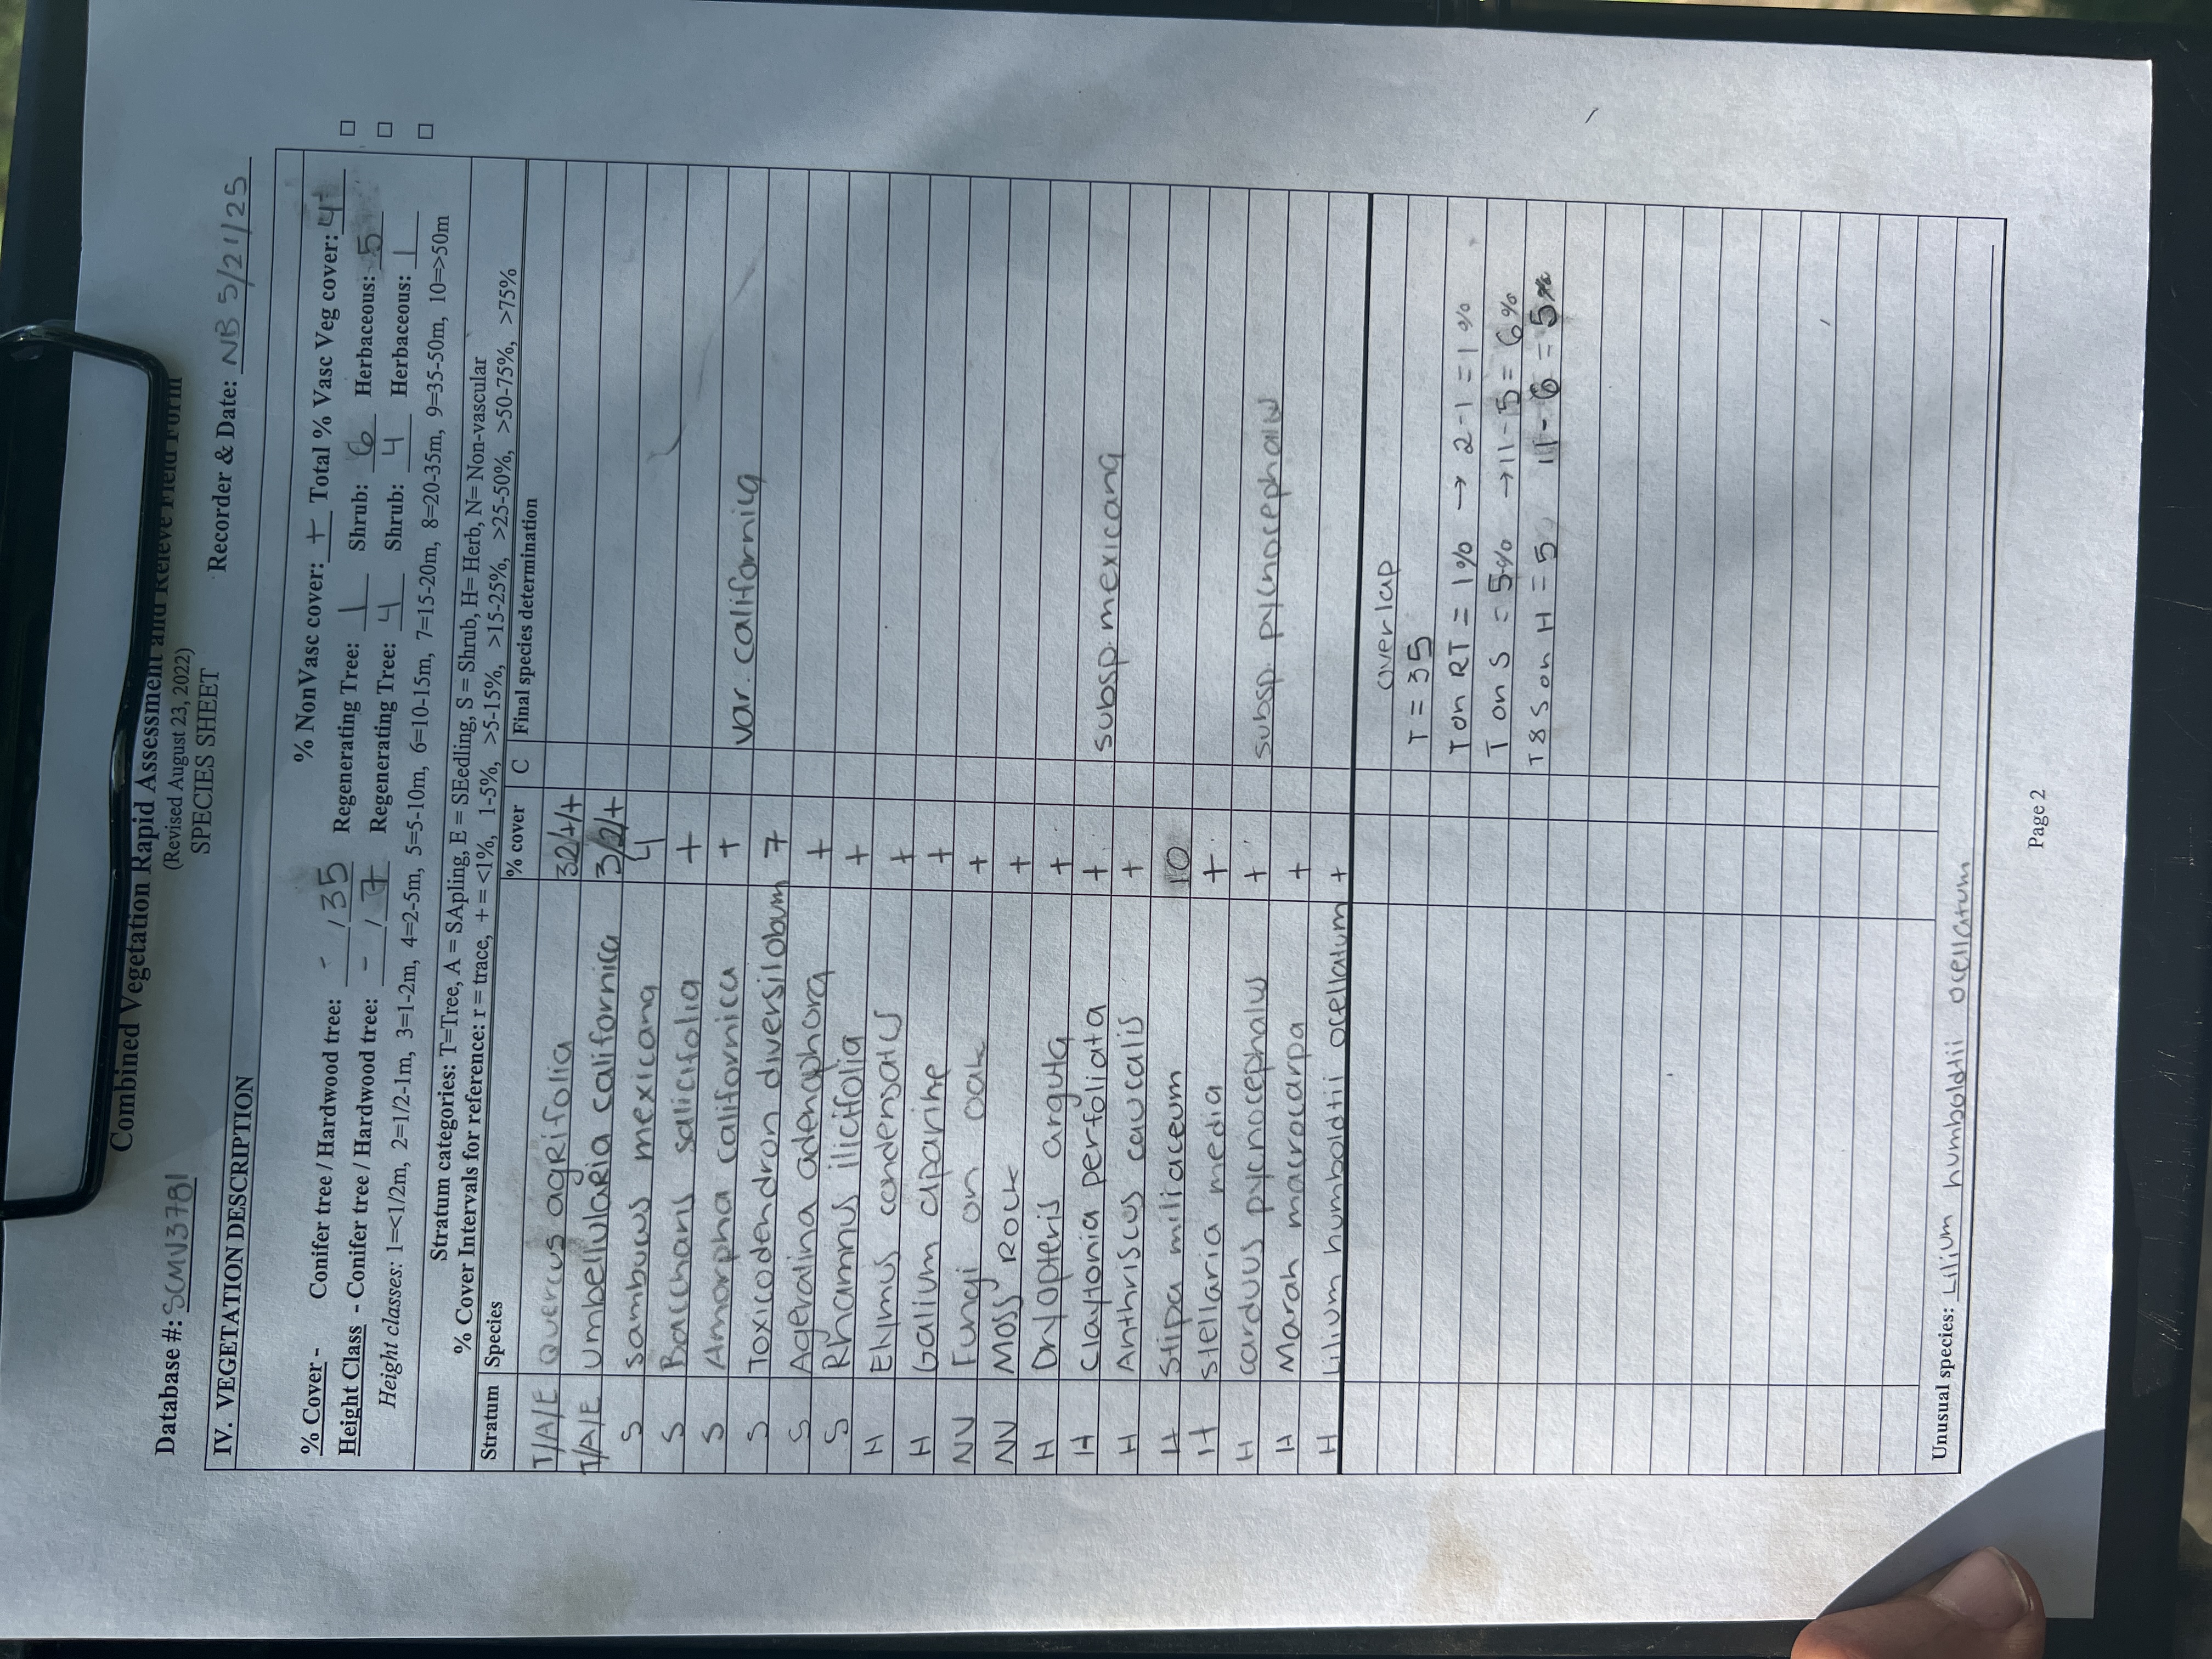 Combined Vegetation Rapid Assessment and Relevé Field Form
(Revised August 23, 2022)
SPECIES SHEET
Database #: SCMV3781 Recorder & Date: NB 5/21/25
IV. VEGETATION DESCRIPTION
% NonVasc cover: + Total % Vasc Veg cover:
% Cover - Conifer tree / Hardwood tree: - / 35 Regenerating Tree: 1 Shrub: 6 Herbaceous: 5
Height Class - Conifer tree / Hardwood tree: - / 7 Regenerating Tree: 4 Shrub: 4 Herbaceous: 1
Height classes: 1=<1/2m, 2=1/2-1m, 3=1-2m, 4=2-5m, 5=5-10m, 6=10-15m, 7=15-20m, 8=20-35m, 9=35-50m, 10=>50m
Stratum categories: T=Tree, A = SApling, E = SEedling, S = Shrub, H= Herb, N= Non-vascular
% Cover Intervals for reference: r = trace, + = <1%, 1-5%, >5-15%, >15-25%, >25-50%, >50-75%, >75%
Stratum Species % cover C Final species determination
T/A/E Quercus agrifolia 32/+/+
T/A/E Umbellularia californica 3/2/+
S sambucus mexicana 4
S Baccharis salicifolia +
S Amorpha californica + var. californica
S Toxicodendron diversilobum 7
S Ageratina adenophora +
S Rhamnus ilicifolia +
H Elymus condensatus +
H Galium aparine +
NV Fungi on oak +
NV Moss Rock +
H Dryopteris arguta +
H Claytonia perfoliata + subsp mexicana
H Anthriscus caucalis +
H Stipa miliaceum 10
H stellaria media +
H carduus pycnocephalus + subsp. pycnocephalus
H Marah macrocarpa +
H Lilium humboldtii ocellatum +
overlap
T = 35
T on RT = 1% → 2-1 = 1%
T on S = 5% → 11-5 = 6%
T & S on H = 5 11 - 6 = 5%
Unusual species: Lilium humboldtii ocellatum
Page 2